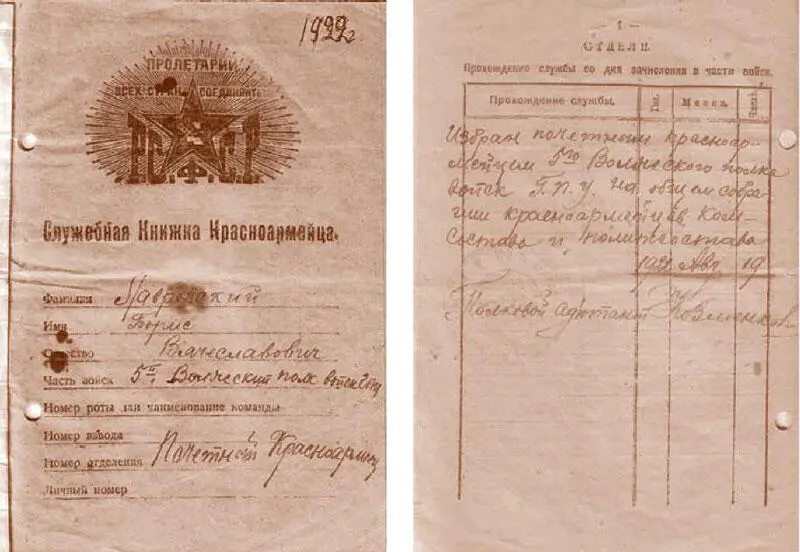 1922г.
ПРОЛЕТАРИИ
ВСЕХ СТРАН СОЕДИНЯЙТЕСЬ
Р.С.Ф.С.Р.
Служебная Книжка Красноармейца.
Фамилия
Имя Борис
Отчество Вячеславович
Часть войск 5й Волжский полк войск гпу
Номер роты или наименование команды
Номер взвода
Номер отделения Почетный Красноармеец
Личный номер
— 1 —
ОТДЕЛ II.
Прохождение службы со дня зачисления в части войск.
Прохождение службы. Год. Месяц. Число.
Избран почетным красноар-
мейцем 5го Волжского полка
войск Г.П.У. на общем собра-
нии красноармейцев Ком-
состава и политсостава
1922 Авг. 19
Полковой адъютант